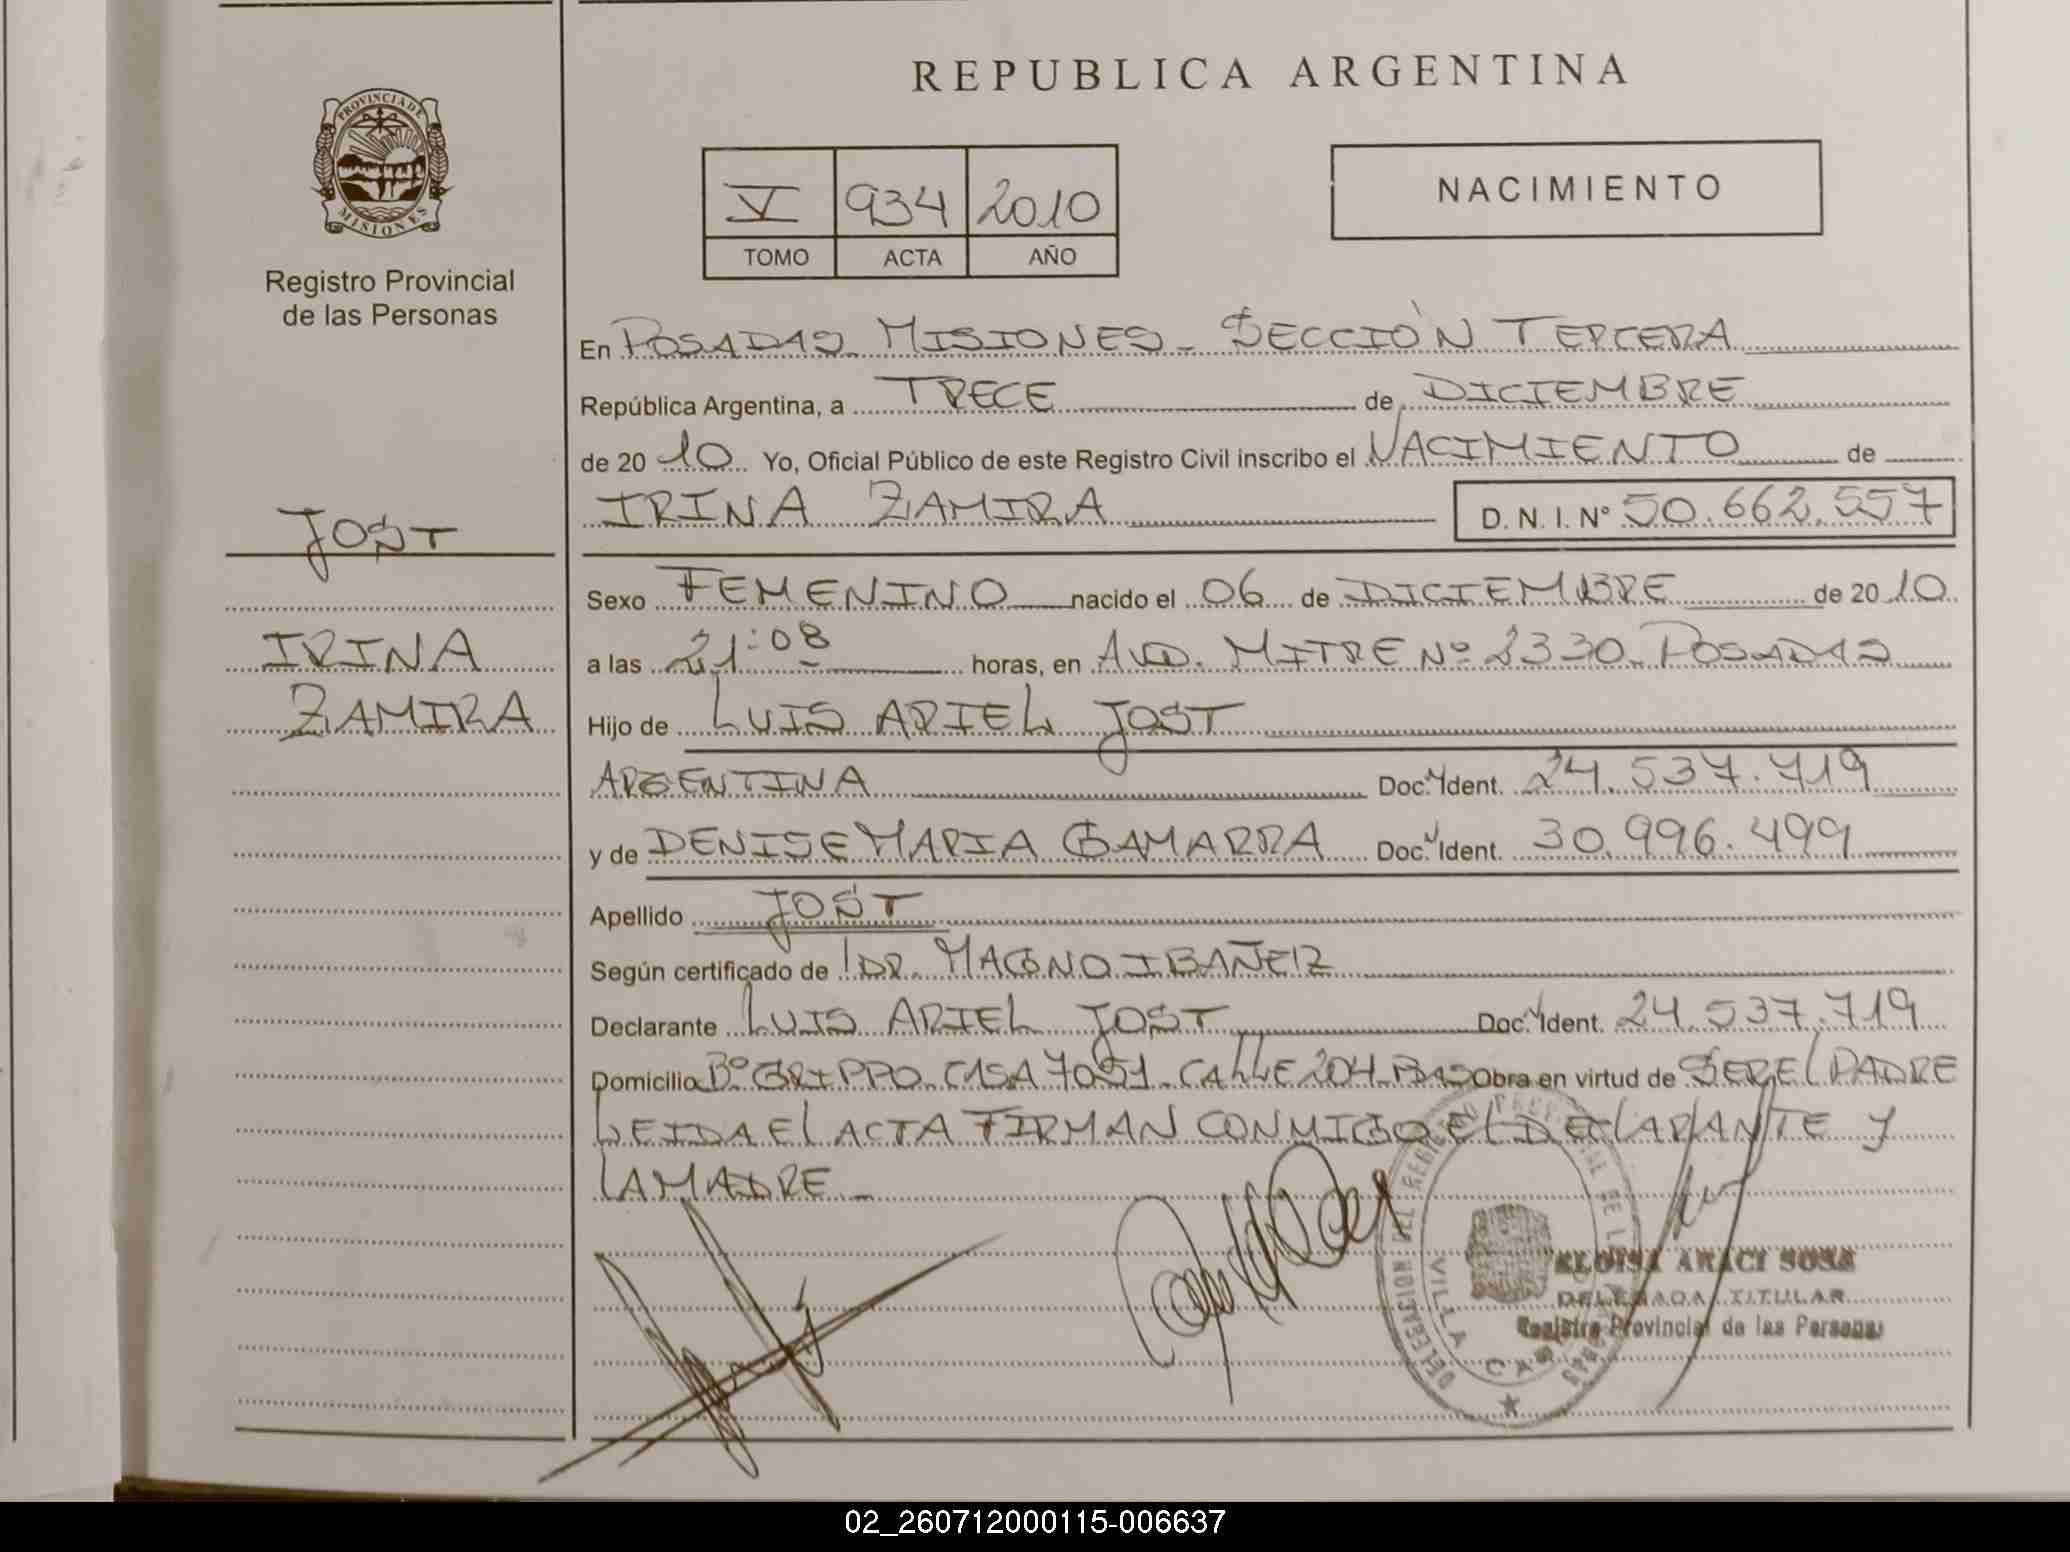 REPUBLICA ARGENTINA
PROVINCIA DE
MISIONES
Registro Provincial
de las Personas
V 934 2010
TOMO ACTA AÑO
NACIMIENTO
En POSADAS MISIONES - SECCIÓN TERCERA
República Argentina, a TRECE de DICIEMBRE
de 20 10 Yo, Oficial Público de este Registro Civil inscribo el NACIMIENTO de
IRINA ZAMIRA D. N. I. N° 50.662.557
JOST
IRINA
ZAMIRA
Sexo FEMENINO nacido el 06 de DICIEMBRE de 20 10
a las 21:08 horas, en AVD. MITRE Nº 2330 POSADAS
Hijo de LUIS ARIEL JOST
ARGENTINA Doc. Ident. 24.537.719
y de DENISE MARIA GAMARRA Doc. Ident. 30.996.499
Apellido JOST
Según certificado de DR. MAGNO IBAÑEZ
Declarante LUIS ARIEL JOST Doc. Ident. 24.537.719
Domicilio Bº GRIPPO CASA 7051 CALLE 204 Obra en virtud de SER EL PADRE
LEIDA EL ACTA FIRMAN CONMIGO EL DECLARANTE Y
LA MADRE -
ELOISA ARACI SOSA
DELEGADA TITULAR
Registro Provincial de las Personas
DELEGACION DEL REGISTRO
VILLA
02_260712000115-006637